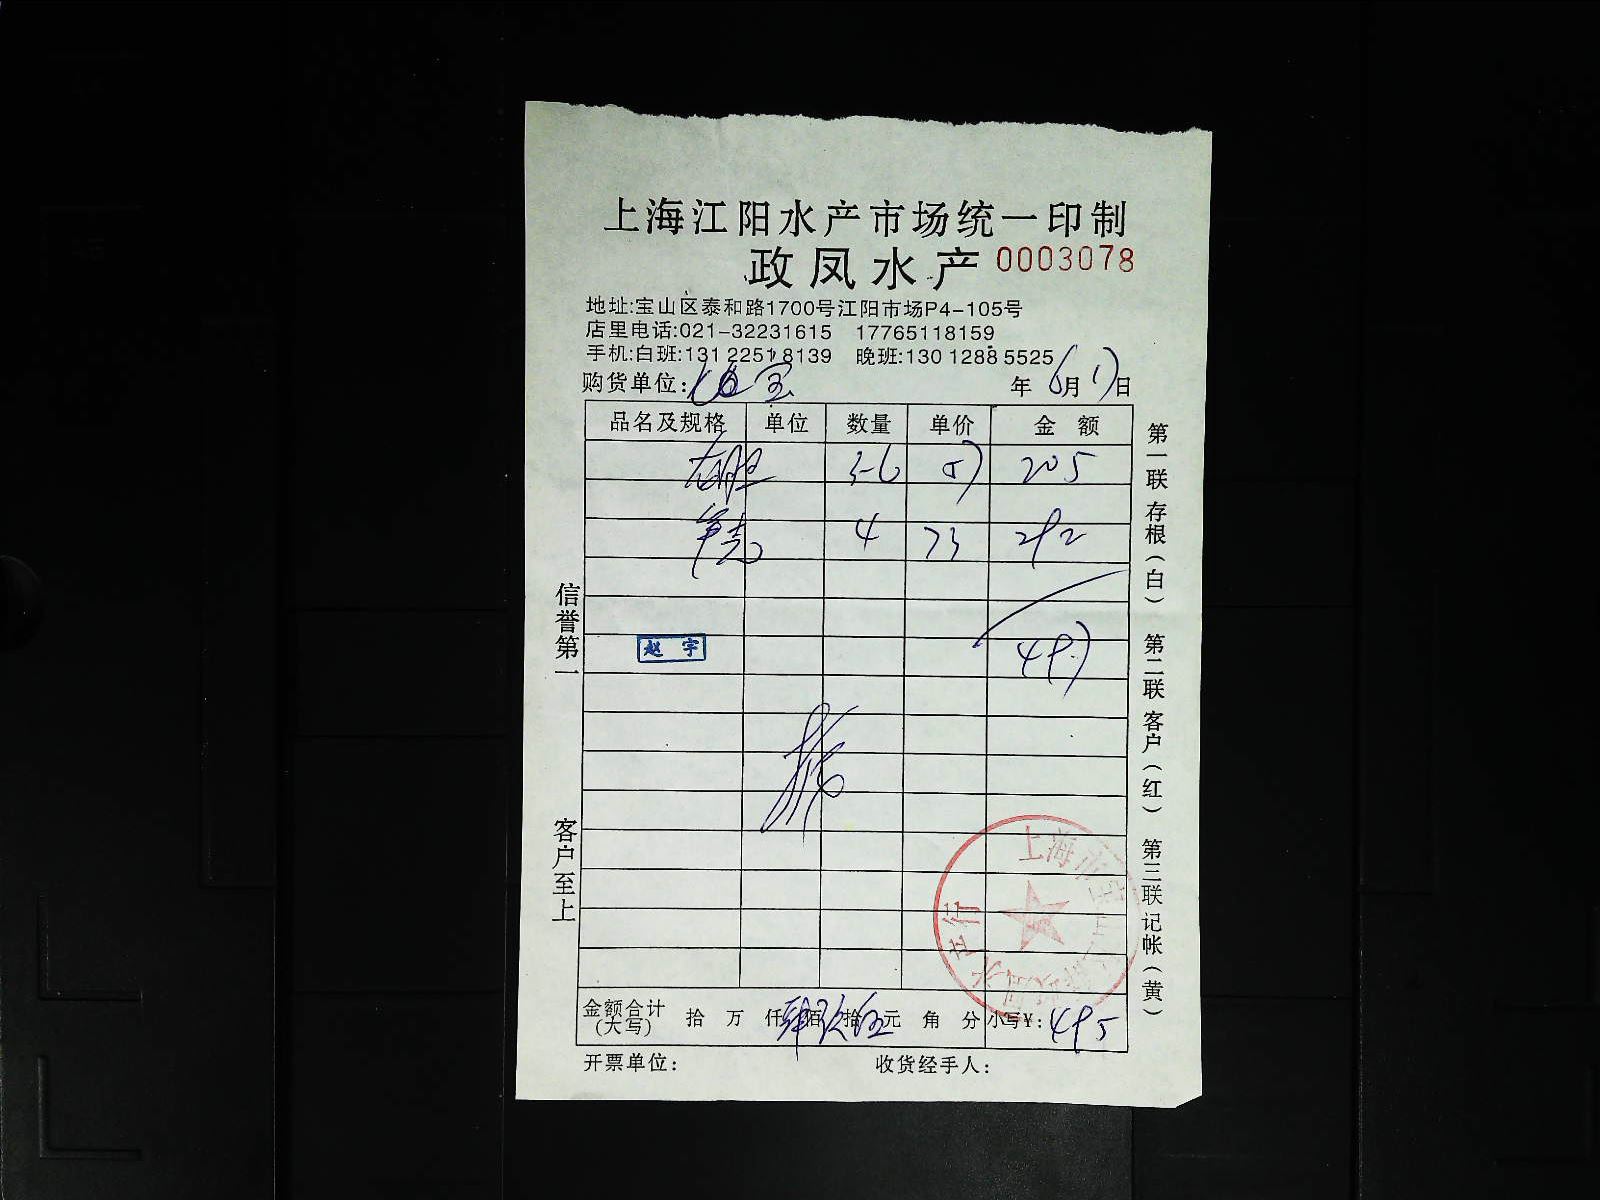 上海江阳水产市场统一印制
政凤水产 0003078
地址:宝山区泰和路1700号江阳市场P4-105号
店里电话:021-32231615 17765118159
手机:白班:131 2251 8139 晚班:130 1288 5525
购货单位: 年 6月17日
品名及规格 单位 数量 单价 金额
3-6 57 205
4 73 292
497
赵宇
信誉第一
客户至上
第一联 存根(白) 第二联 客户(红) 第三联 记帐(黄)
金额合计(大写) 拾 万 仟肆佰玖拾伍元 角 分 小写¥:495
开票单位: 收货经手人: